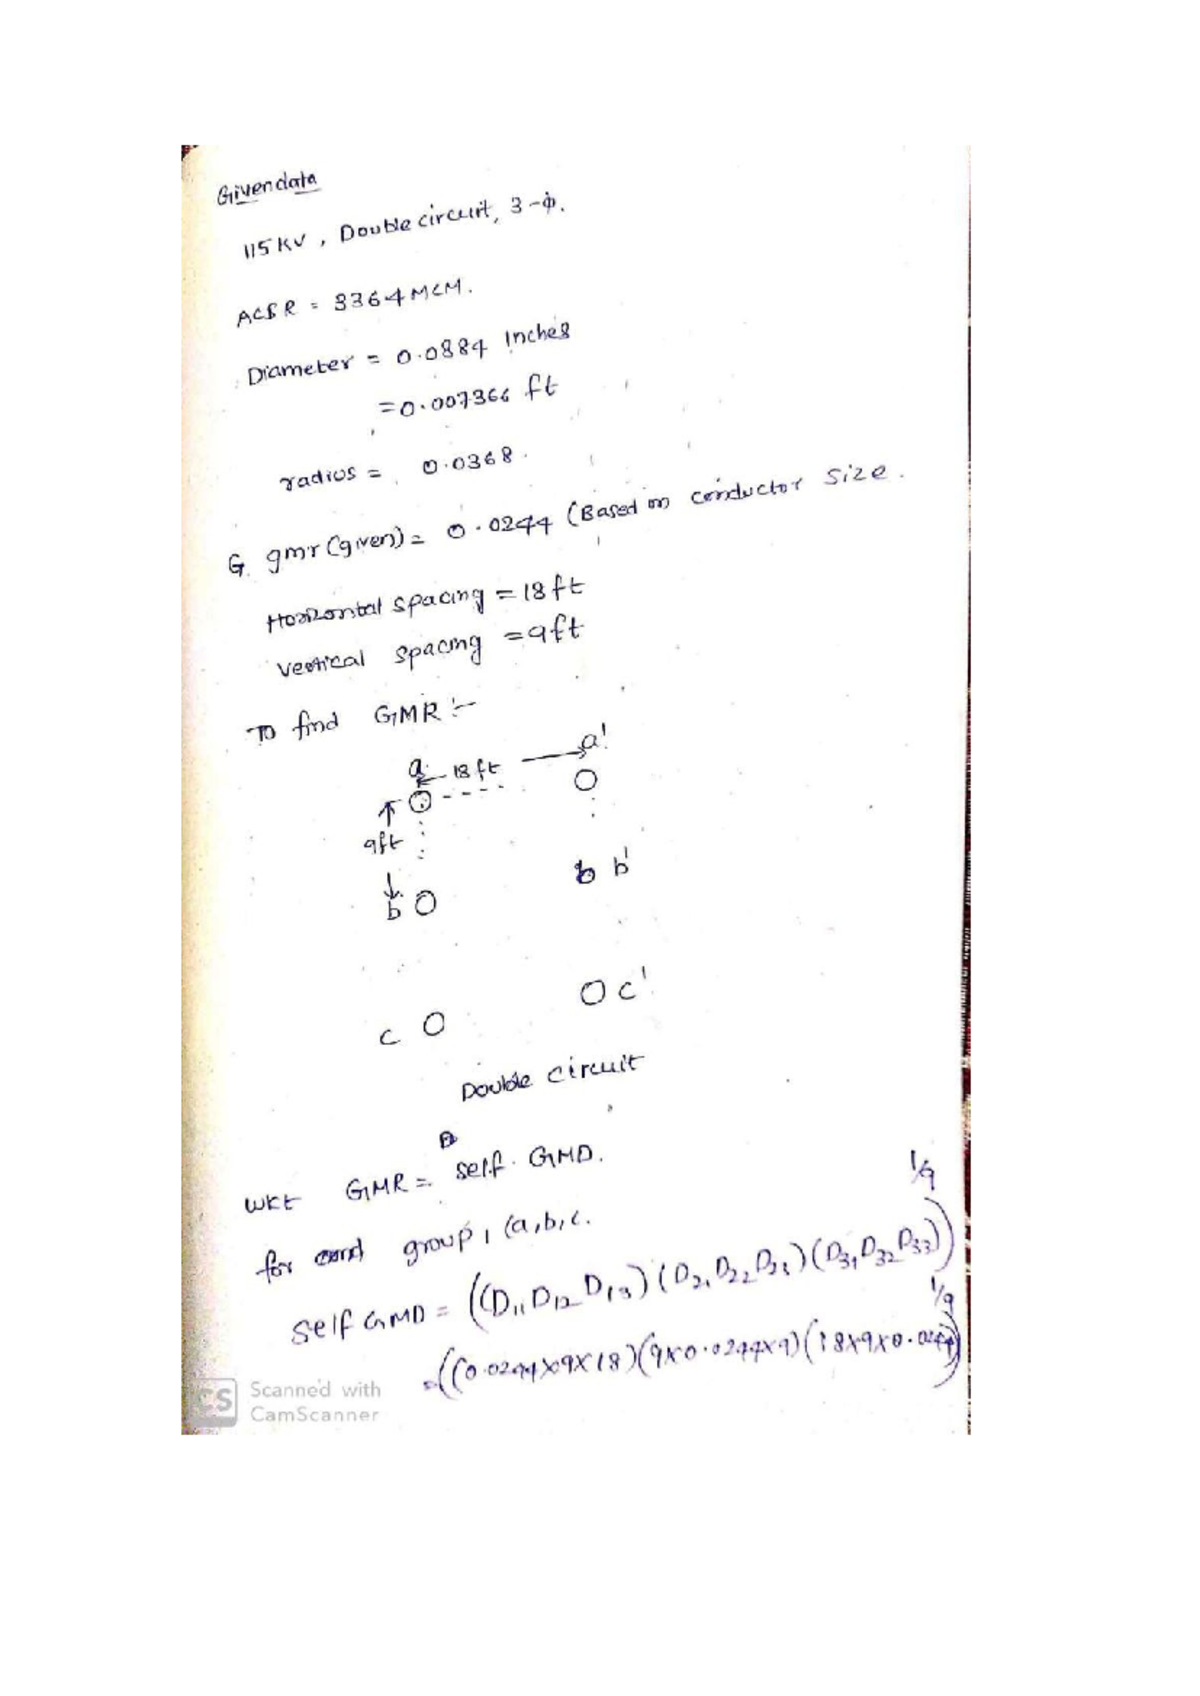 Given data
115 KV, Double circuit, 3-Φ.
ACSR = 3364 MCM.
Diameter = 0.0884 Inches
= 0.007366 ft
radius = 0.0368.
G. gmr (given) = 0.0244 (Based on conductor size.
Horizontal spacing = 18 ft
vertical spacing = 9 ft
To find GMR :-
a 18 ft a'
9ft
b b'
c c'
Double circuit
WKT GMR = self. GMD.
for group 1 (a,b,c.
self GMD = ((D11 D12 D13) (D21 D22 D23) (D31 D32 D33))^1/9
= ((0.0244×9×18)(9×0.0244×9)(18×9×0.0244))^1/9
CS Scanned with
CamScanner